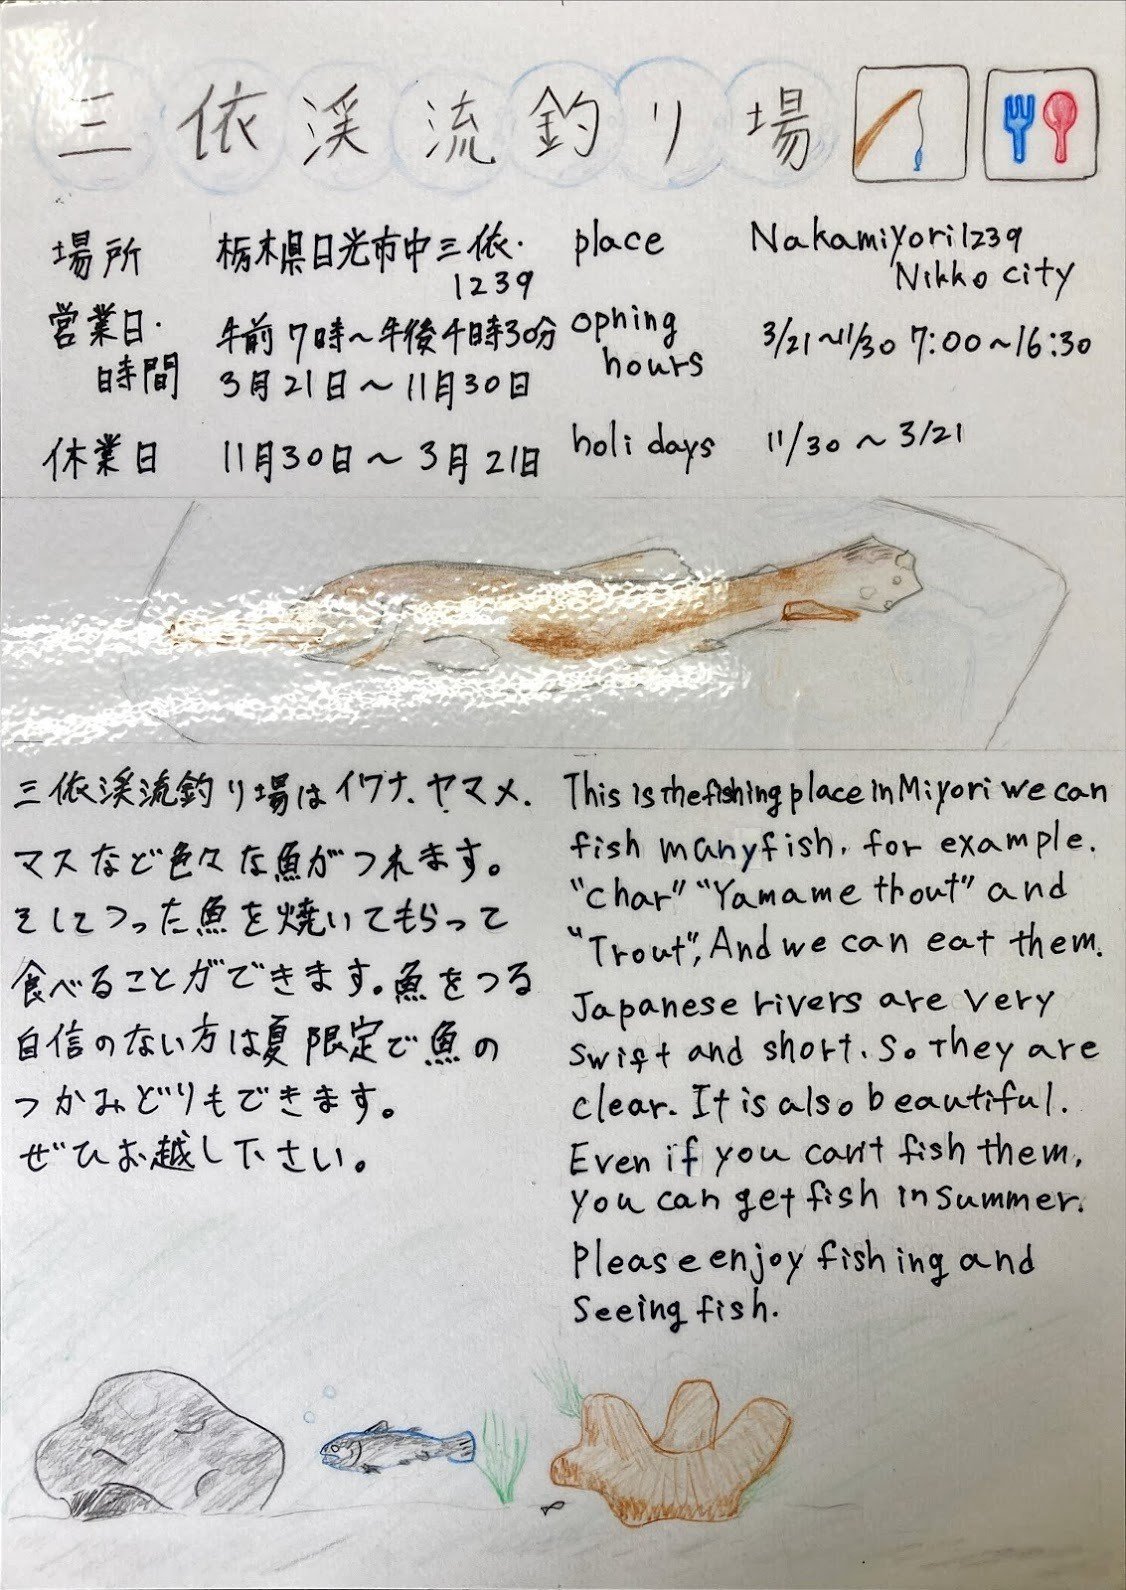 三依渓流釣り場
場所 栃木県日光市中三依・
1239
営業日・
時間
午前7時～午後4時30分
3月21日～11月30日
休業日 11月30日～3月21日
place Nakamiyori1239
Nikko city
ophing
hours
3/21~11/30 7:00~16:30
holidays 11/30~3/21
三依渓流釣り場はイワナ、ヤマメ、
マスなど色々な魚がつれます。
そしてつった魚を焼いてもらって
食べることができます。魚をつる
自信のない方は夏限定で魚の
つかみどりもできます。
ぜひお越し下さい。
This is the fishing place in Miyori we can
fish many fish. for example.
"char" "Yamame thout" and
"Trout", And we can eat them.
Japanese rivers are very
swift and short. So They are
clear. It is also beautiful.
Even if you can't fish them,
you can get fish in summer.
Please enjoy fishing and
Seeing fish.